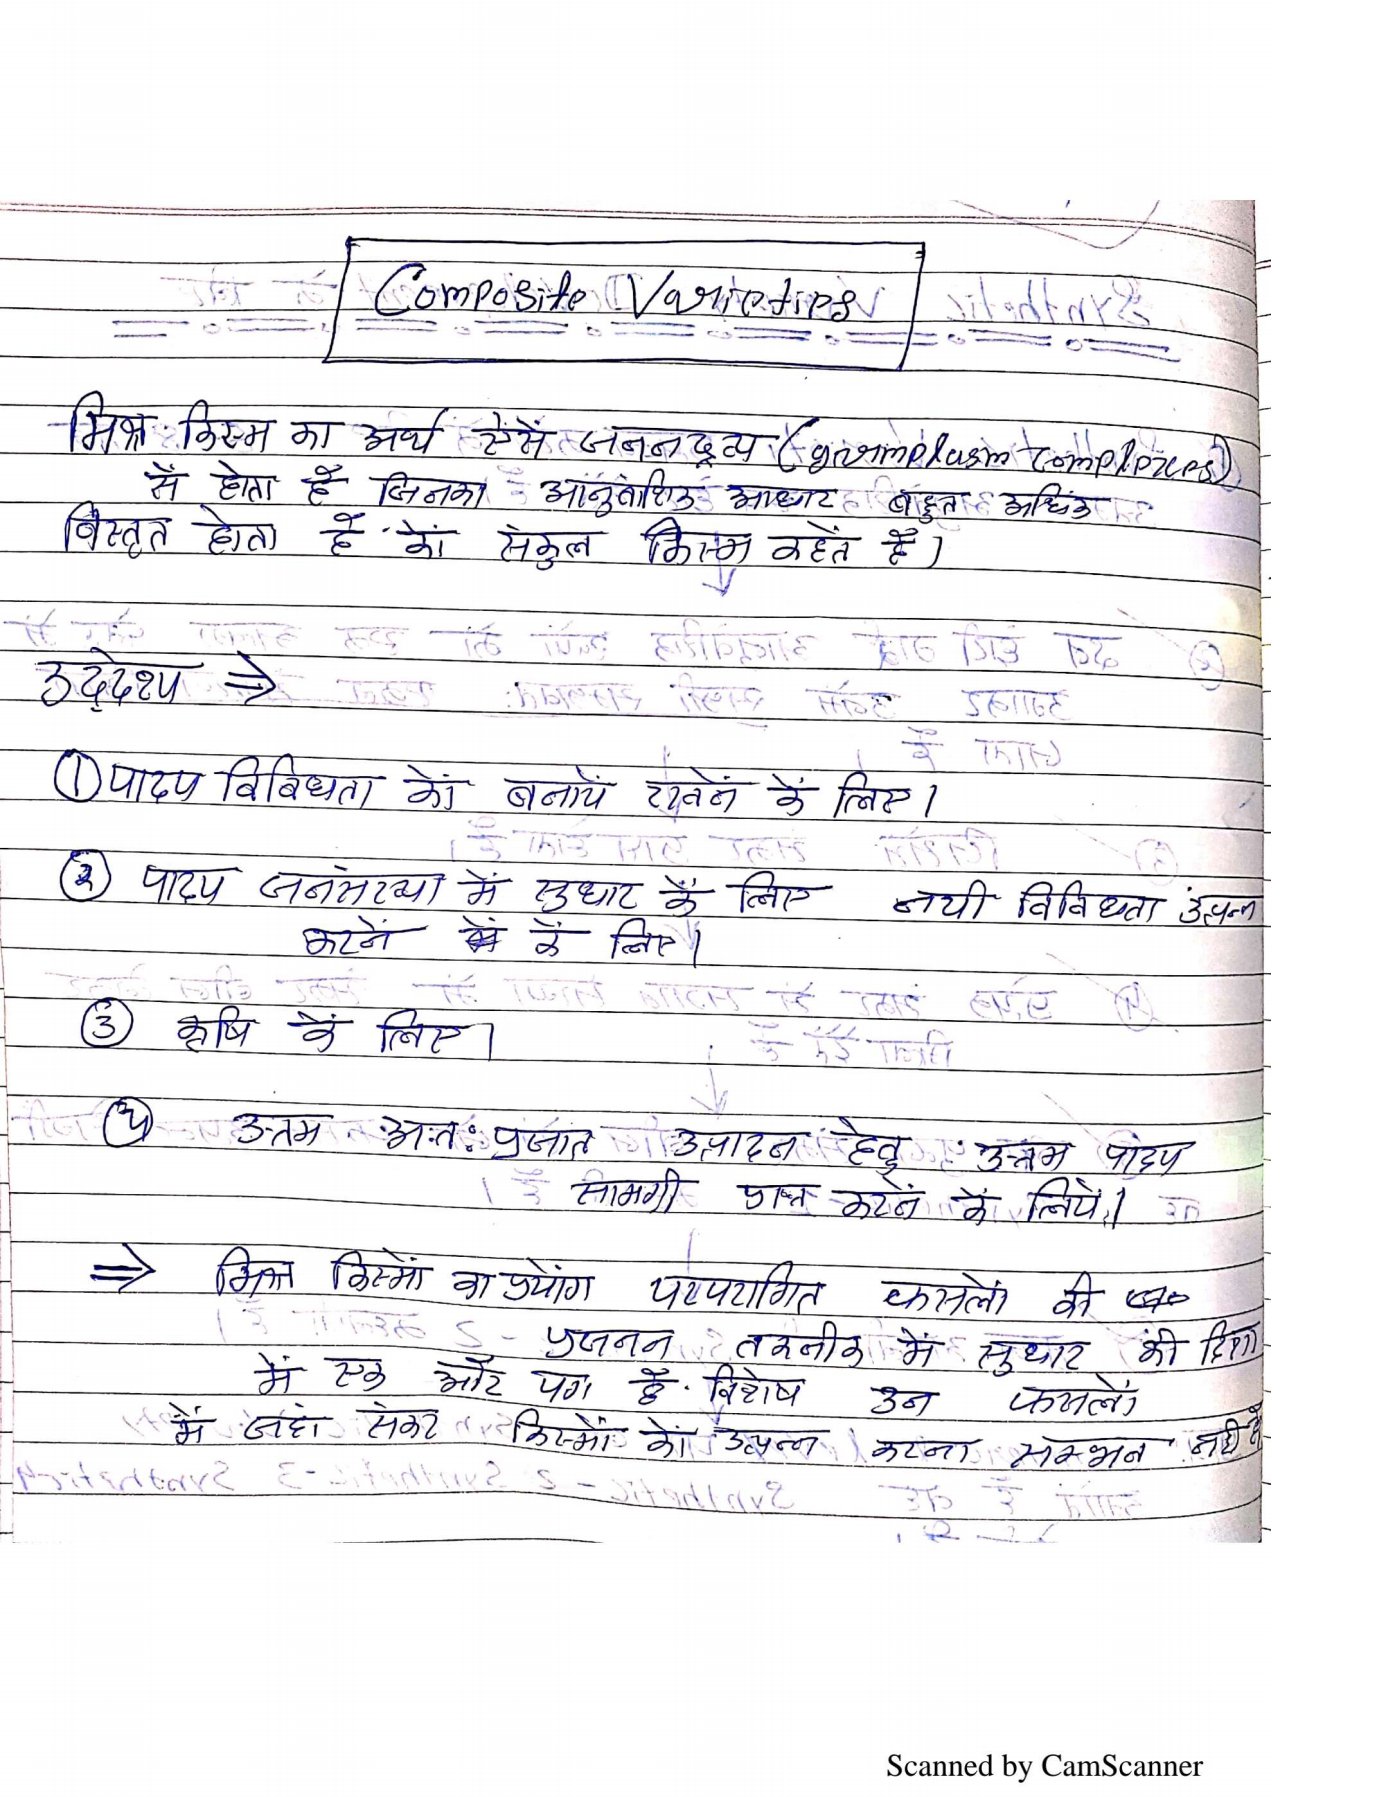 Composite Varieties
मिश्र किस्म का अर्थ ऐसें जननद्रव्य (germplasm complexes)
सें होता हैं जिनका आनुवांशिक आधार बहुत अधिक
विस्तृत होता हैं कों संकुल किस्म कहतें हैं।
उद्देश्य ⇒
① पादप विविधता कों बनायें रखनें कें लिए।
② पादप जनसंख्या में सुधार कें लिए नयी विविधता उत्पन्न
करनें कें लिए।
③ कृषि कें लिए।
④ उत्तम अन्तः प्रजात उत्पादन हेतु उत्तम पादप
सामग्री प्राप्त करनें कें लियें।
⇒ मिश्र किस्मों का प्रयोंग परपरागित फसलों की
प्रजनन तकनीक में सुधार की दिशा
में एक और पग हैं विशेष उन फसलों
में जहां संकर किस्मों कों उत्पन्न करना सम्भव नहीं हैं
Scanned by CamScanner